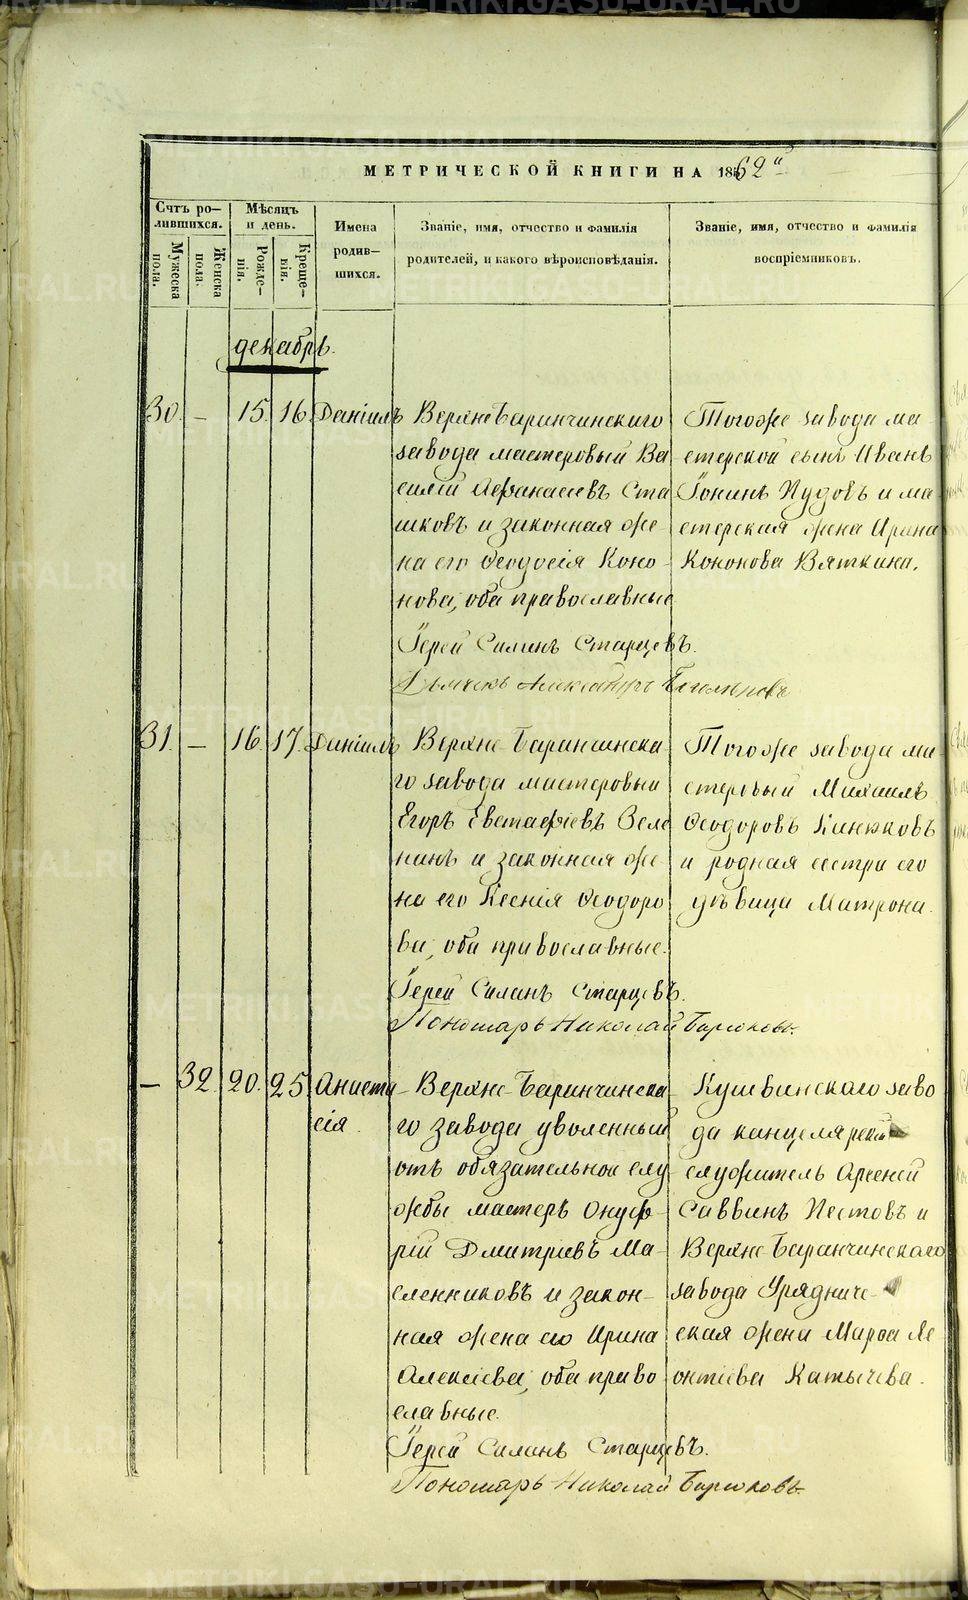 МЕТРИЧЕСКОЙ КНИГИ НА 1862й
Счтъ ро-
дившихся.
Мужеска
пола.
Женска
пола.
Мѣсяцъ
и день.
Рожде-
нія.
Креще-
нія.
Имена
родив-
шихся.
Званіе, имя, отчество и фамилія
родителей, и какого вѣроисповѣданія.
Званіе, имя, отчество и фамилія
воспріемниковъ.
декабрь.
30. – 15. 16. Даніилъ
ВерхнеБаранчинскаго
завода мастеровый Ва
силій Афанасіевъ Ста
шковъ и законная же
на его Ѳеодосія Коно-
нова, оба православные
Іерей Силинъ Старцевъ.
Александръ
Тогоже завода ма-
стерской сынъ Иванъ
Іонинъ Пудовъ и ма-
стерская жена Ирина
Кононова Вяткина.
31. – 16. 17. Даніилъ
Верхне-Баранчинска
го завода мастеровый
Егоръ Евстафіевъ Зеле
нинъ и законная же
на его Ксенія Ѳеодоро
ва, оба православные.
Іерей Силинъ Старцевъ.
Пономарь Николай Бирюковъ.
Тогоже завода ма-
стеровый Михаилъ
Ѳеодоровъ
и родная сестра его
дѣвица Матрона.
– 32. 20. 25. Анаста
сія.
Верхне-Баранчинска
го завода уволенный
отъ обязательной слу
жбы мастеръ Онуф-
рій Дмитріевъ Ма-
сленниковъ и закон-
ная жена его Ирина
Алексіева, оба право
славные.
Іерей Силинъ Старцевъ.
Пономарь Николай Бирюковъ.
Кушвинскаго заво
да канцелярскій
служитель Арсеній
Саввинъ Пестовъ и
Верхне-Баранчинскаго
завода Уряднич-
еская жена Марѳа Ле
онтіева Катычева.
METRIKI.GASO-URAL.RU